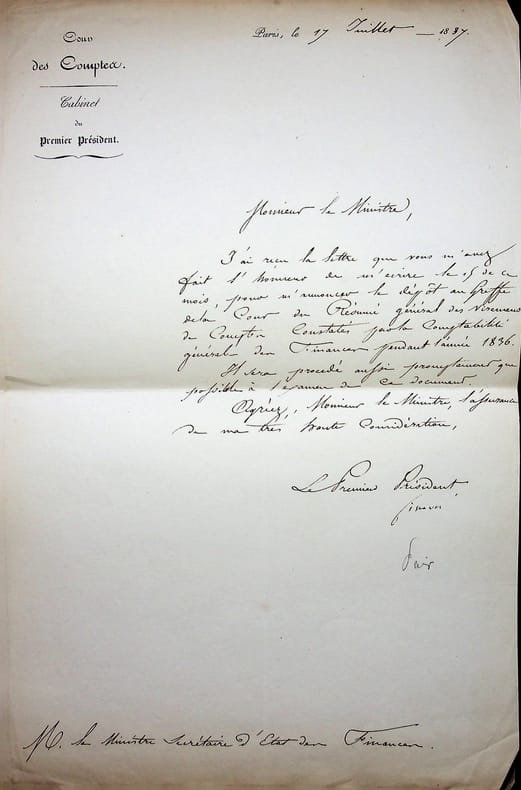 Cour
des Comptes.
Cabinet
du
Premier Président.
Paris, le 17 Juillet 1837.
Monsieur le Ministre,
J'ai reçu la lettre que vous m'avez
fait l'honneur de m'écrire le 15 de ce
mois, pour m'annoncer le dépôt au Greffe
de la Cour du Résumé général des Virements
de Comptes Constatés par la Comptabilité
générale des Finances pendant l'année 1836.
Il sera procédé aussi promptement que
possible à l'examen de ce document.
Agréez, Monsieur le Ministre, l'assurance
de ma très haute Considération,
Le Premier Président
M. le Ministre Secrétaire d'Etat des Finances.